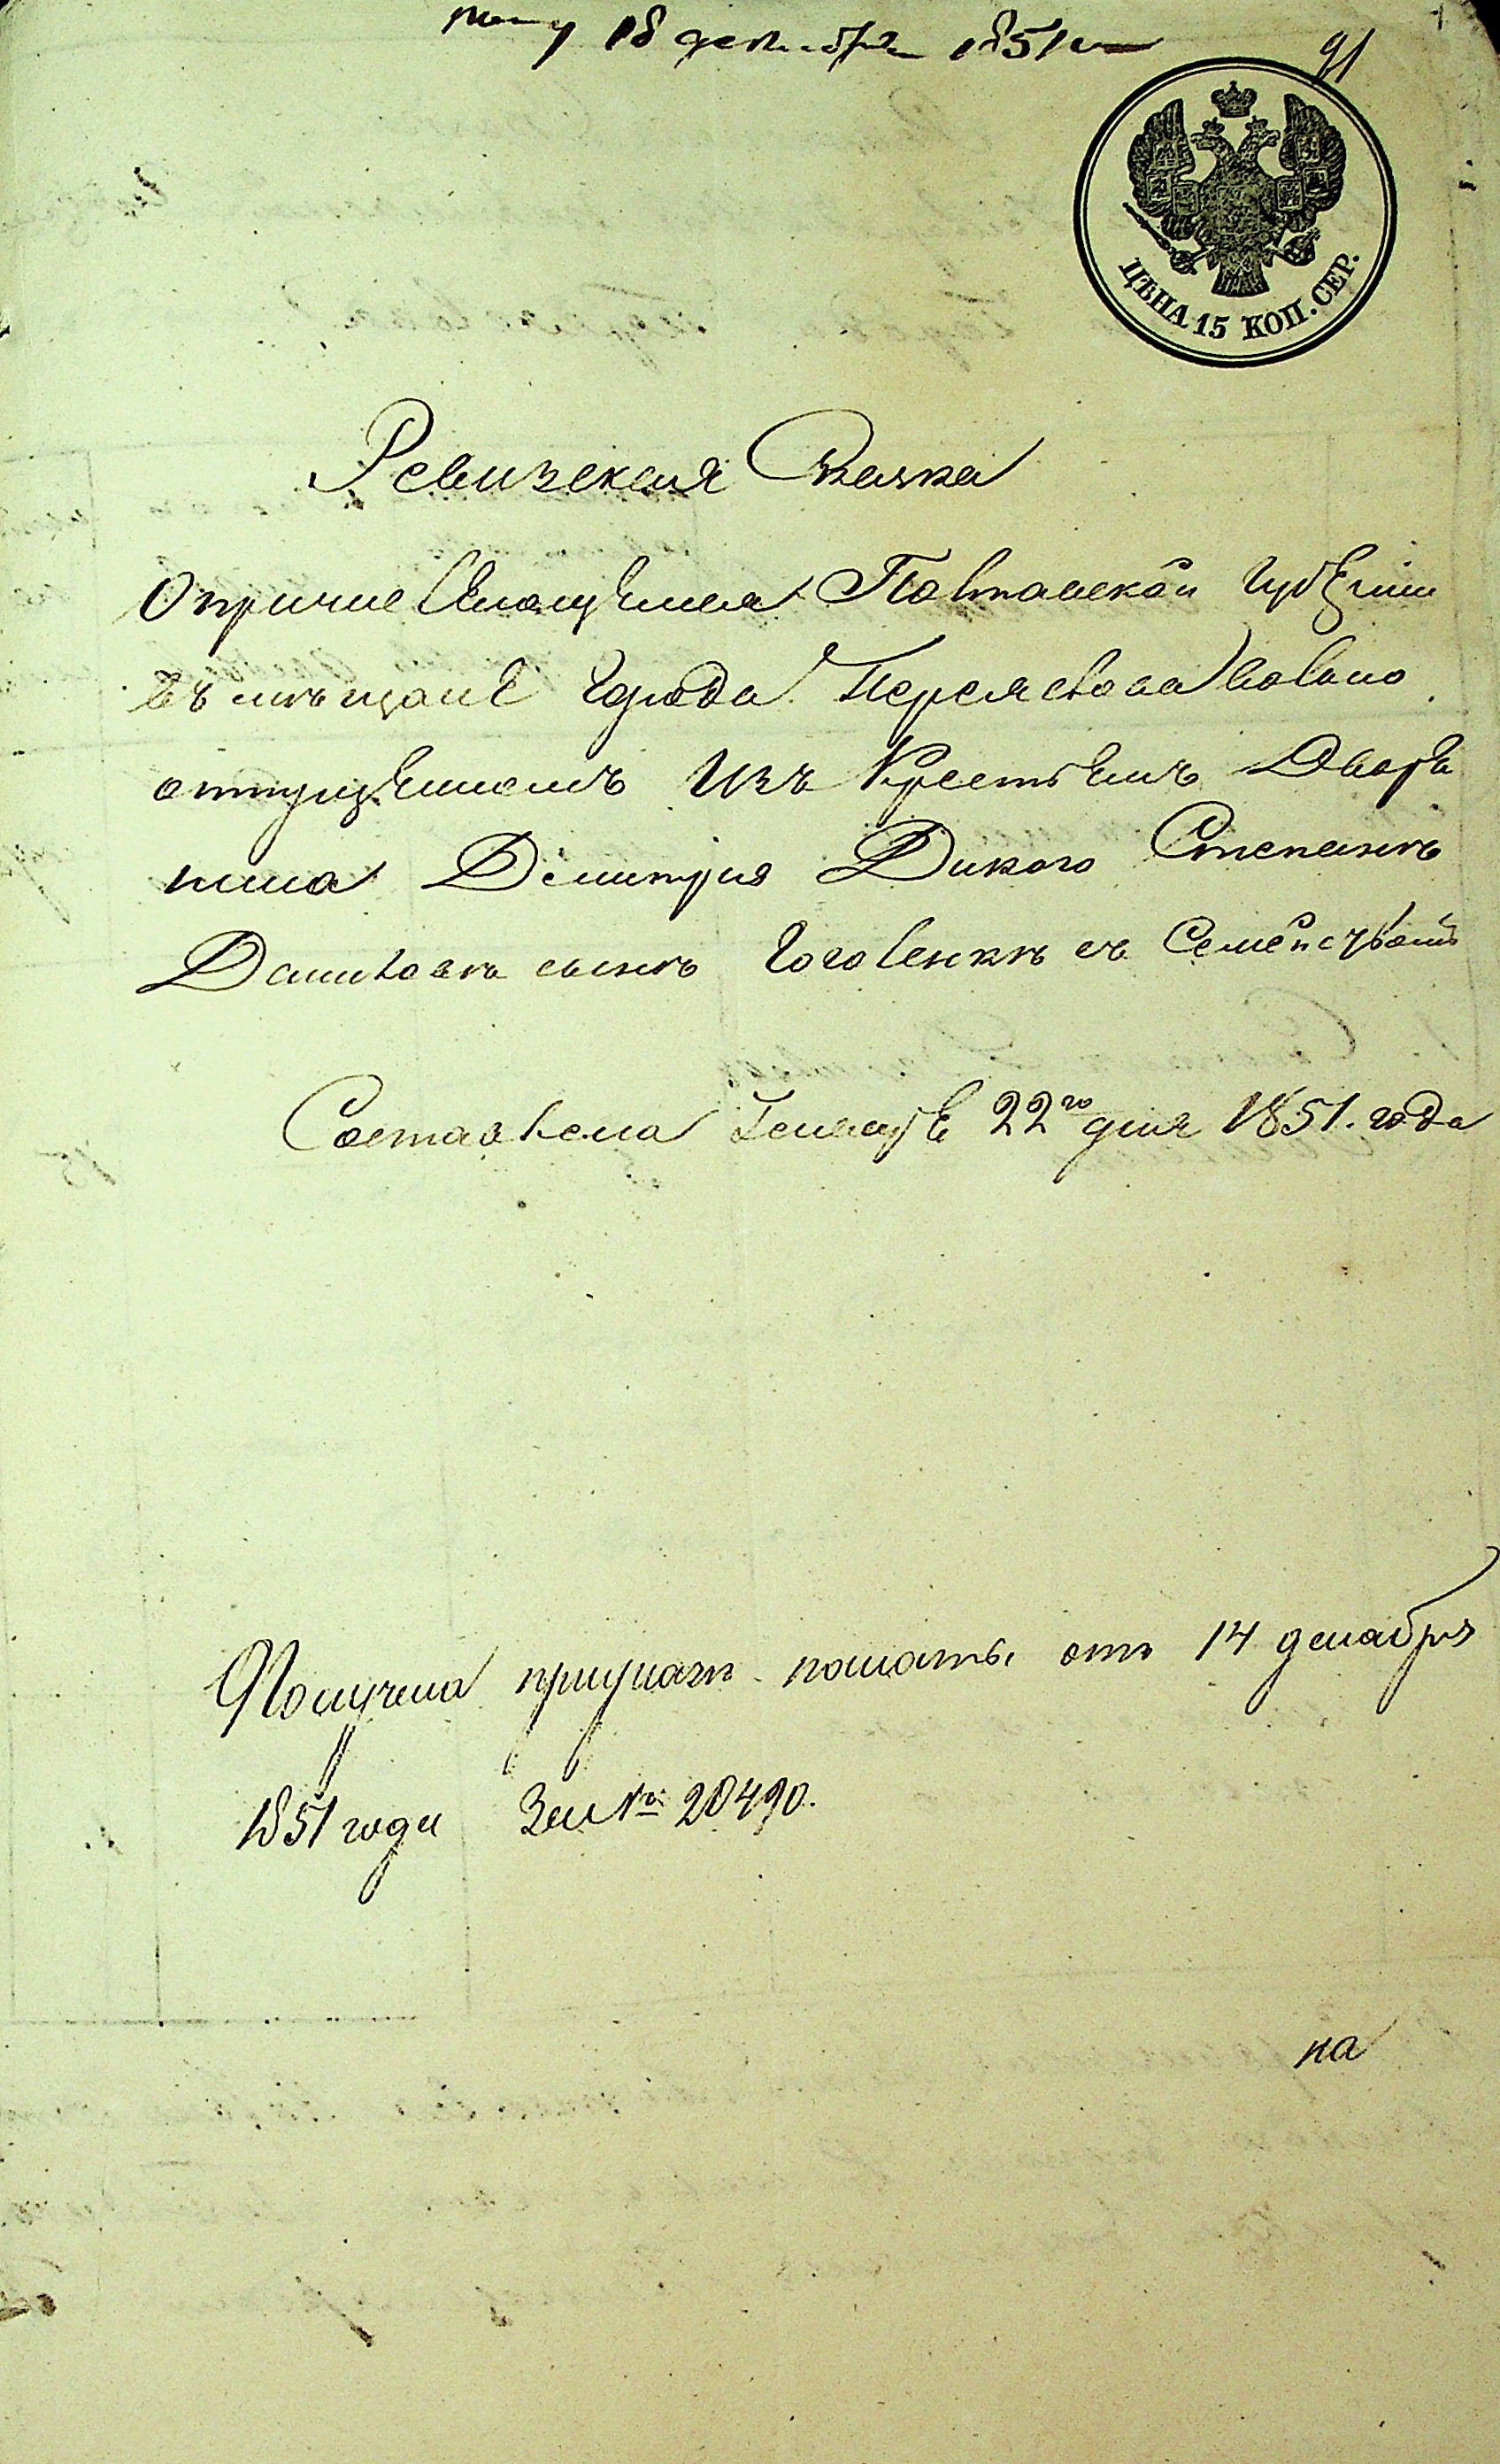 18 декабря 1851
91
ЦѢНА 15 КОП. СЕР.
Ревизская Сказка
О причисляющемся Полтавской Губернии
въ мѣщане города Переяслава вольно
отпущенномъ изъ Крестьянъ Дворя
нина Димитрия Дикого Степанѣ
Даниловѣ сынѣ Гоголенкѣ съ Семействомъ
Составлена Генваря 22го дня 1851. года
Получена при указѣ палаты отъ 14 декабря
1851 года За № 20490.
на